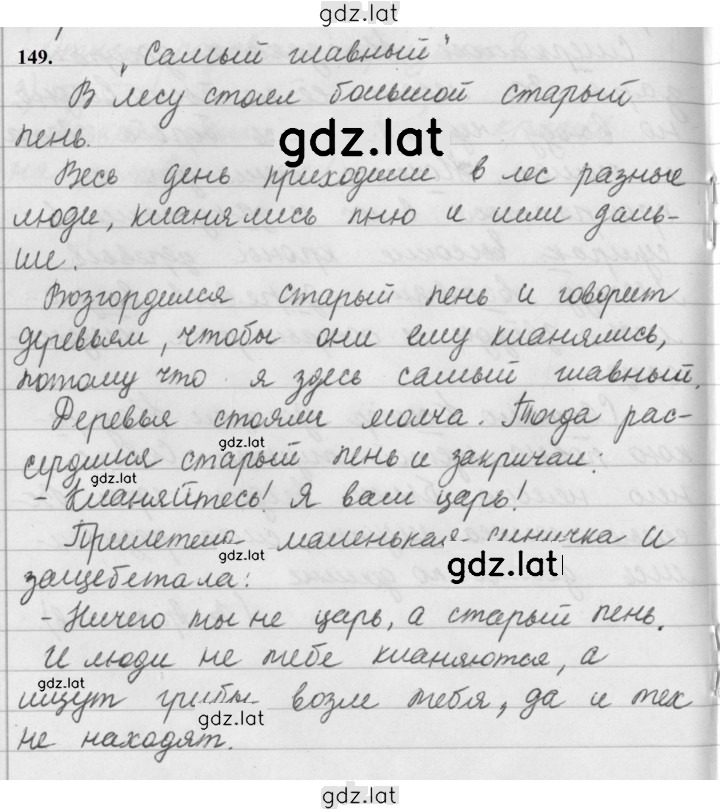 gdz.lat
149. "Самый главный"
В лесу стоял большой старый
пень.
gdz.lat
Весь день приходили в лес разные
люди, кланялись пню и шли даль-
ше.
Возгордился старый пень и говорит
деревьям, чтобы они ему кланялись,
потому что я здесь самый главный.
Деревья стояли молча. Тогда рас-
gdz.lat
сердился старый пень и закричал:
gdz.lat
- Кланяйтесь! Я ваш царь!
Прилетела маленькая синичка и
gdz.lat
gdz.lat
защебетала:
- Ничего ты не царь, а старый пень.
И люди не тебе кланяются, а
gdz.lat
ищут грибы возле тебя, да и тех
gdz.lat
не находят.
gdz.lat